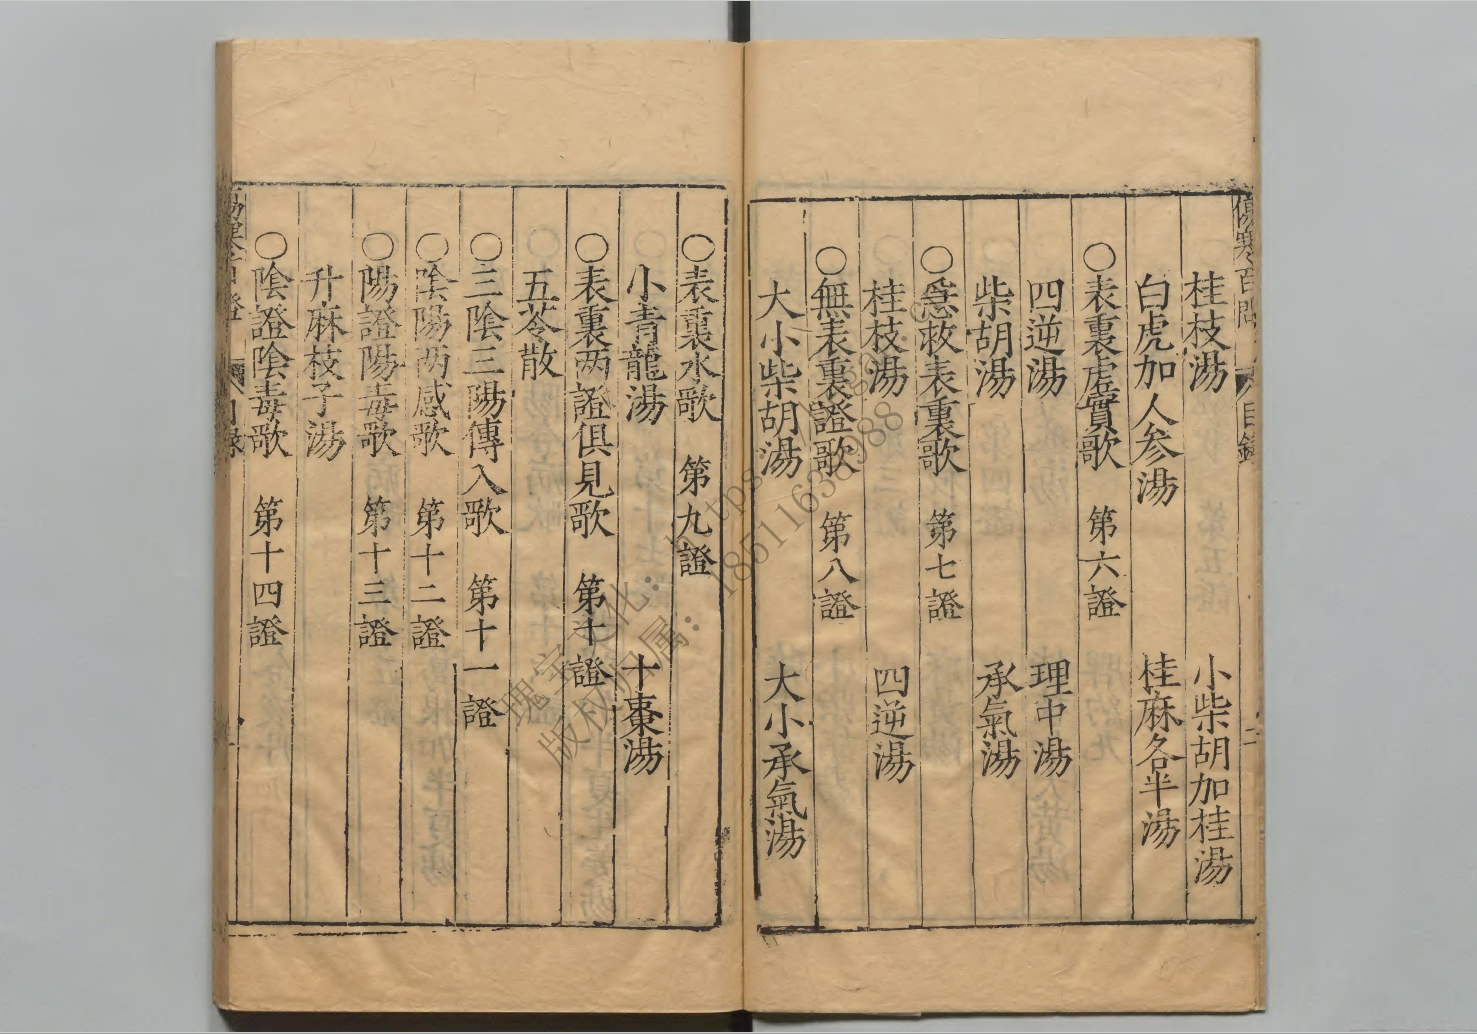 桂枝湯　小柴胡加桂湯
白虎加人参湯　桂麻各半湯
○表裏虛實歌　第六證
四逆湯　理中湯
柴胡湯　承氣湯
○急救表裏歌　第七證
桂枝湯　四逆湯
○無表裏證歌　第八證
大小柴胡湯　大小承氣湯
○表裏水歌　第九證
小青龍湯　十棗湯
○表裏两證俱見歌　第十證
五苓散
○三陰三陽傳入歌　第十一證
○陰陽两感歌　第十二證
○陽證陽毒歌　第十三證
升麻枝子湯
○陰證陰毒歌　第十四證
傷寒百問　目錄
目錄
瑰宝文化：https:
版权归属：18511638988